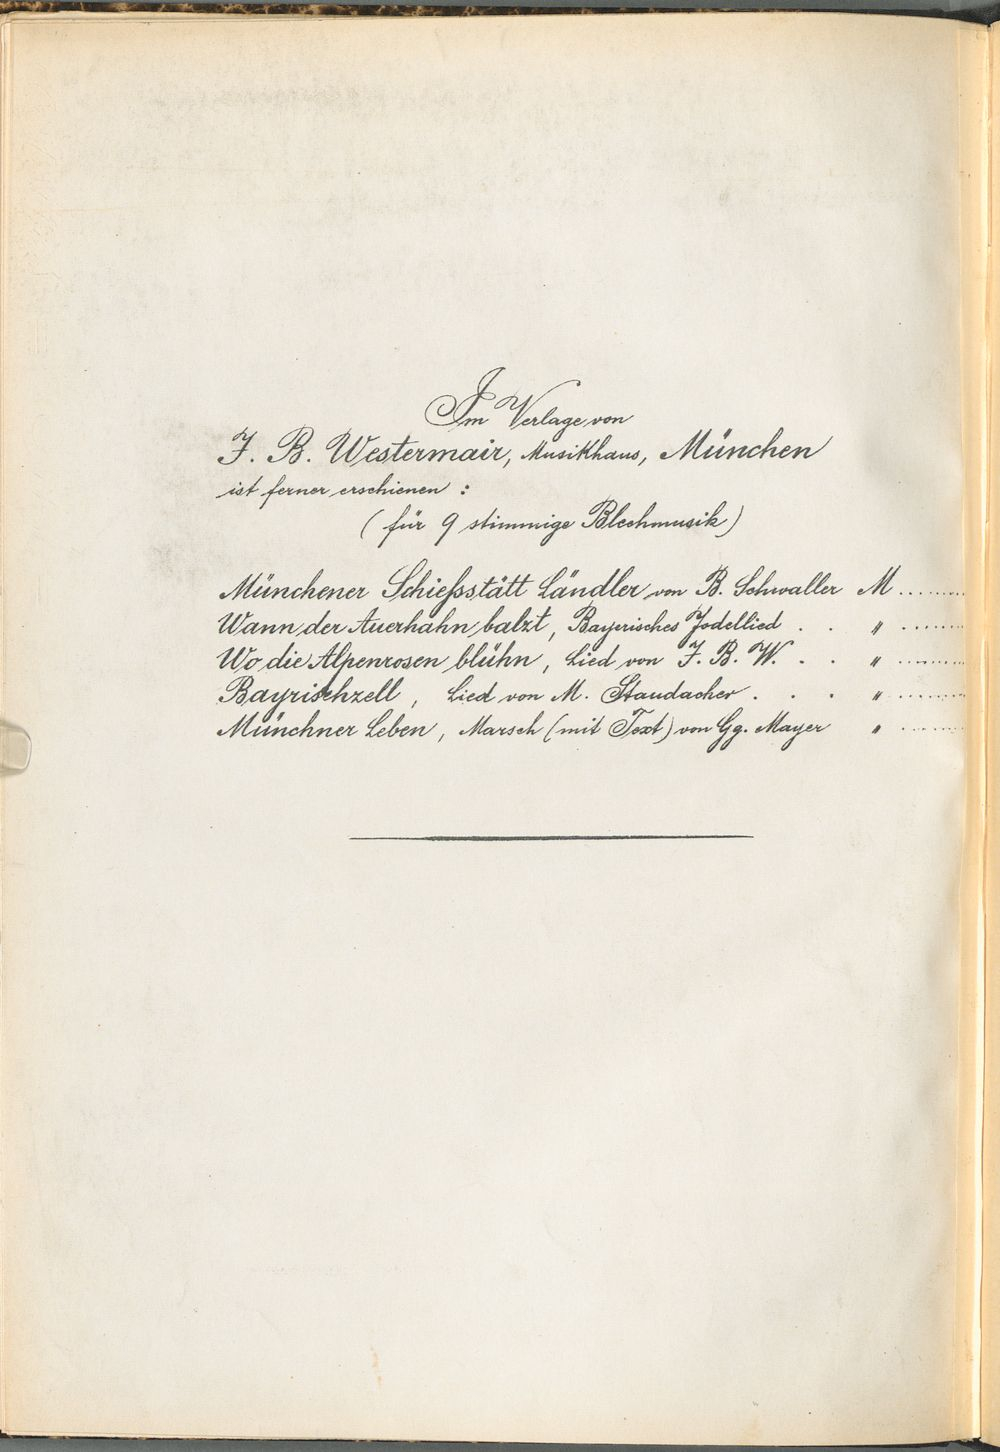 Im Verlage von
J. B. Westermair, Musikhaus, München
ist ferner erschienen :
( für 9 stimmige Blechmusik )
Münchener Schießstätt Ländler von B. Schwaller M.........
Wann der Auerhahn balzt, Bayerisches Jodellied . . " .........
Wo die Alpenrosen blühn, Lied von J. B. W. . . " .........
Bayrischzell, Lied von M. Staudacher . . . " .........
Münchner Leben, Marsch (mit Text) von Gg. Mayer " .........